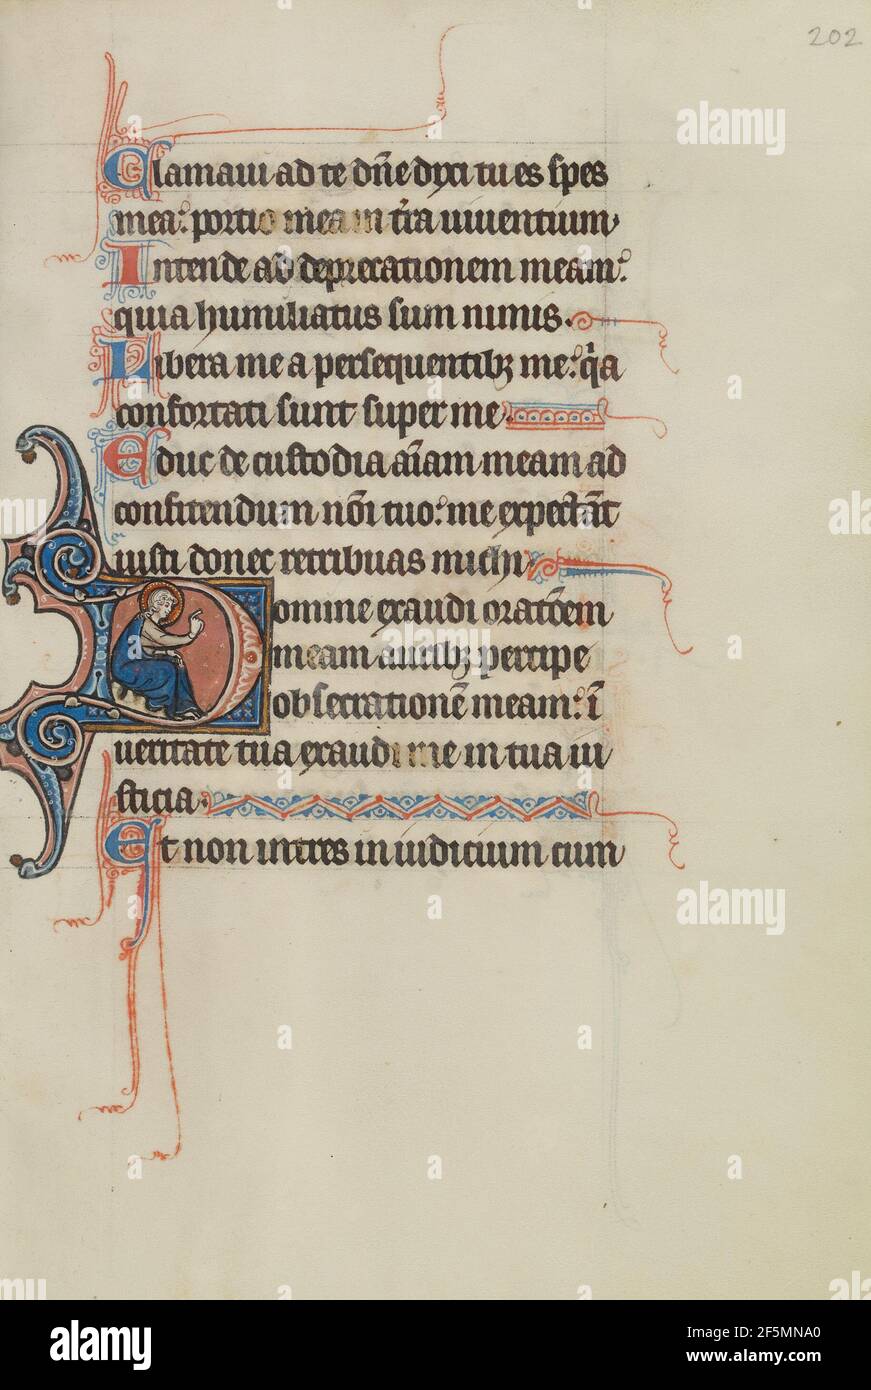 202
Clamaui ad te dn̄e dyxi tu es spes
mea: portio mea in tr̄a uiuentium
Intende ad deprecationem meam:
quia humiliatus sum nimis.
Libera me a persequentibꝫ me: qͥa
confortati sunt super me
Educ de custodia aīam meam ad
confitendum nōi tuo: me expectāt
iusti donec retribuas michi
Domine exaudi oratōem
meam auribꝫ percipe
obsecrationē meam: ī
ueritate tua exaudi me in tua iu
sticia.
Et non intres in iudicium cum
alamy
alamy
alamy
Image ID: 2F5MNA0
www.alamy.com